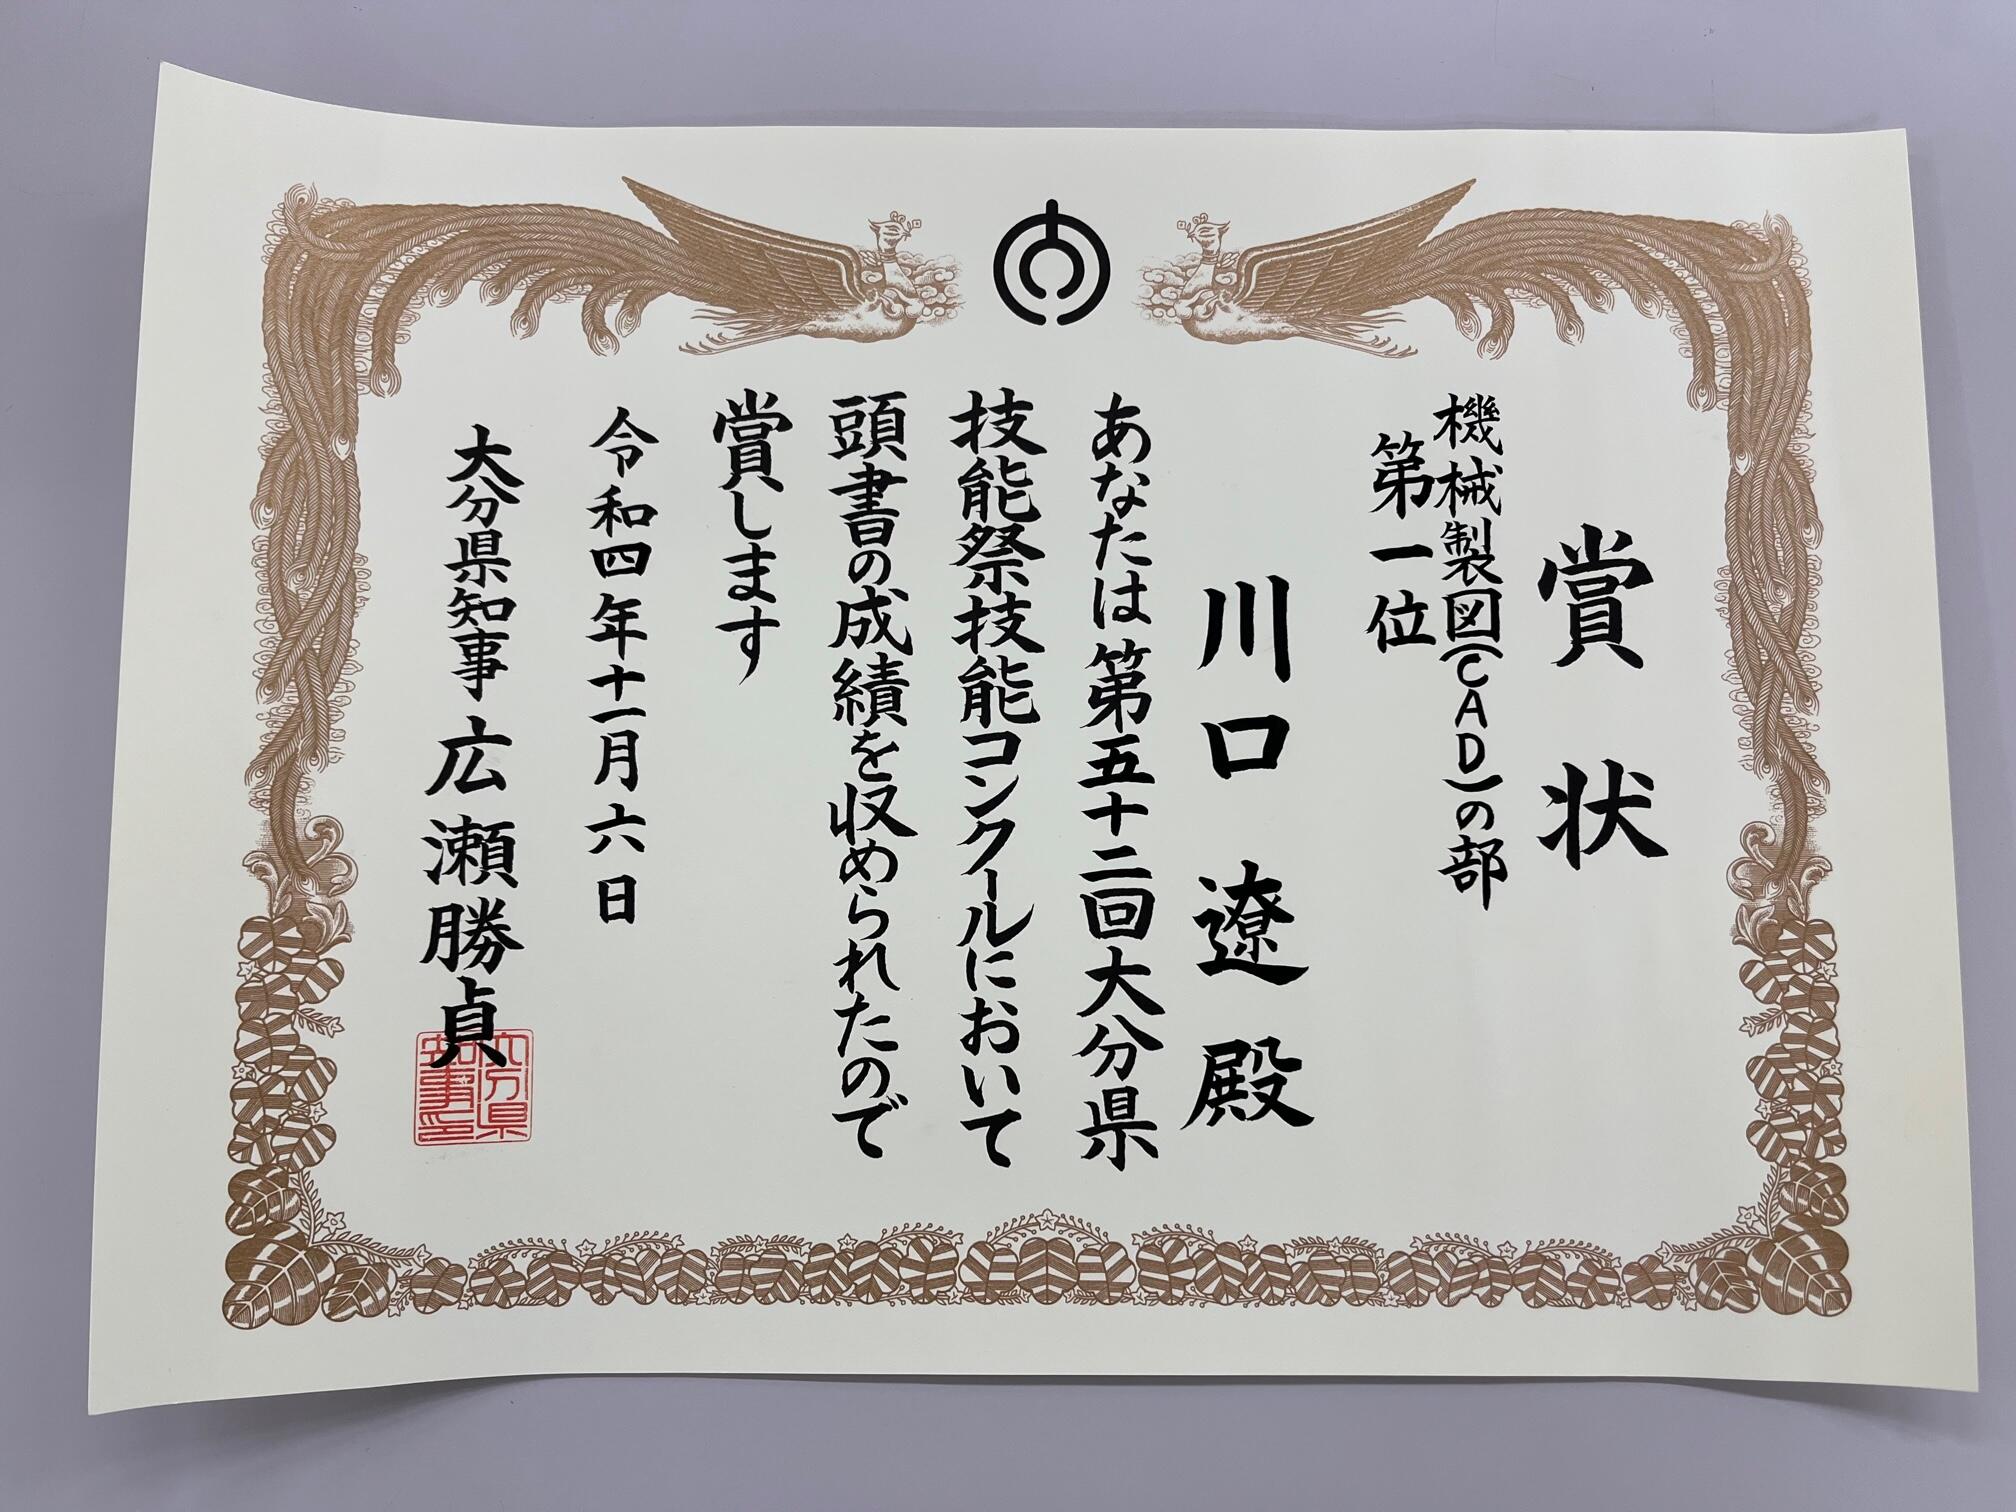 賞状
機械製図(CAD)の部
第一位
川口遼殿
あなたは第五十二回大分県
技能祭技能コンクールにおいて
頭書の成績を収められたので
賞します
令和四年十一月六日
大分県知事 広瀬勝貞
大分県
知事之印